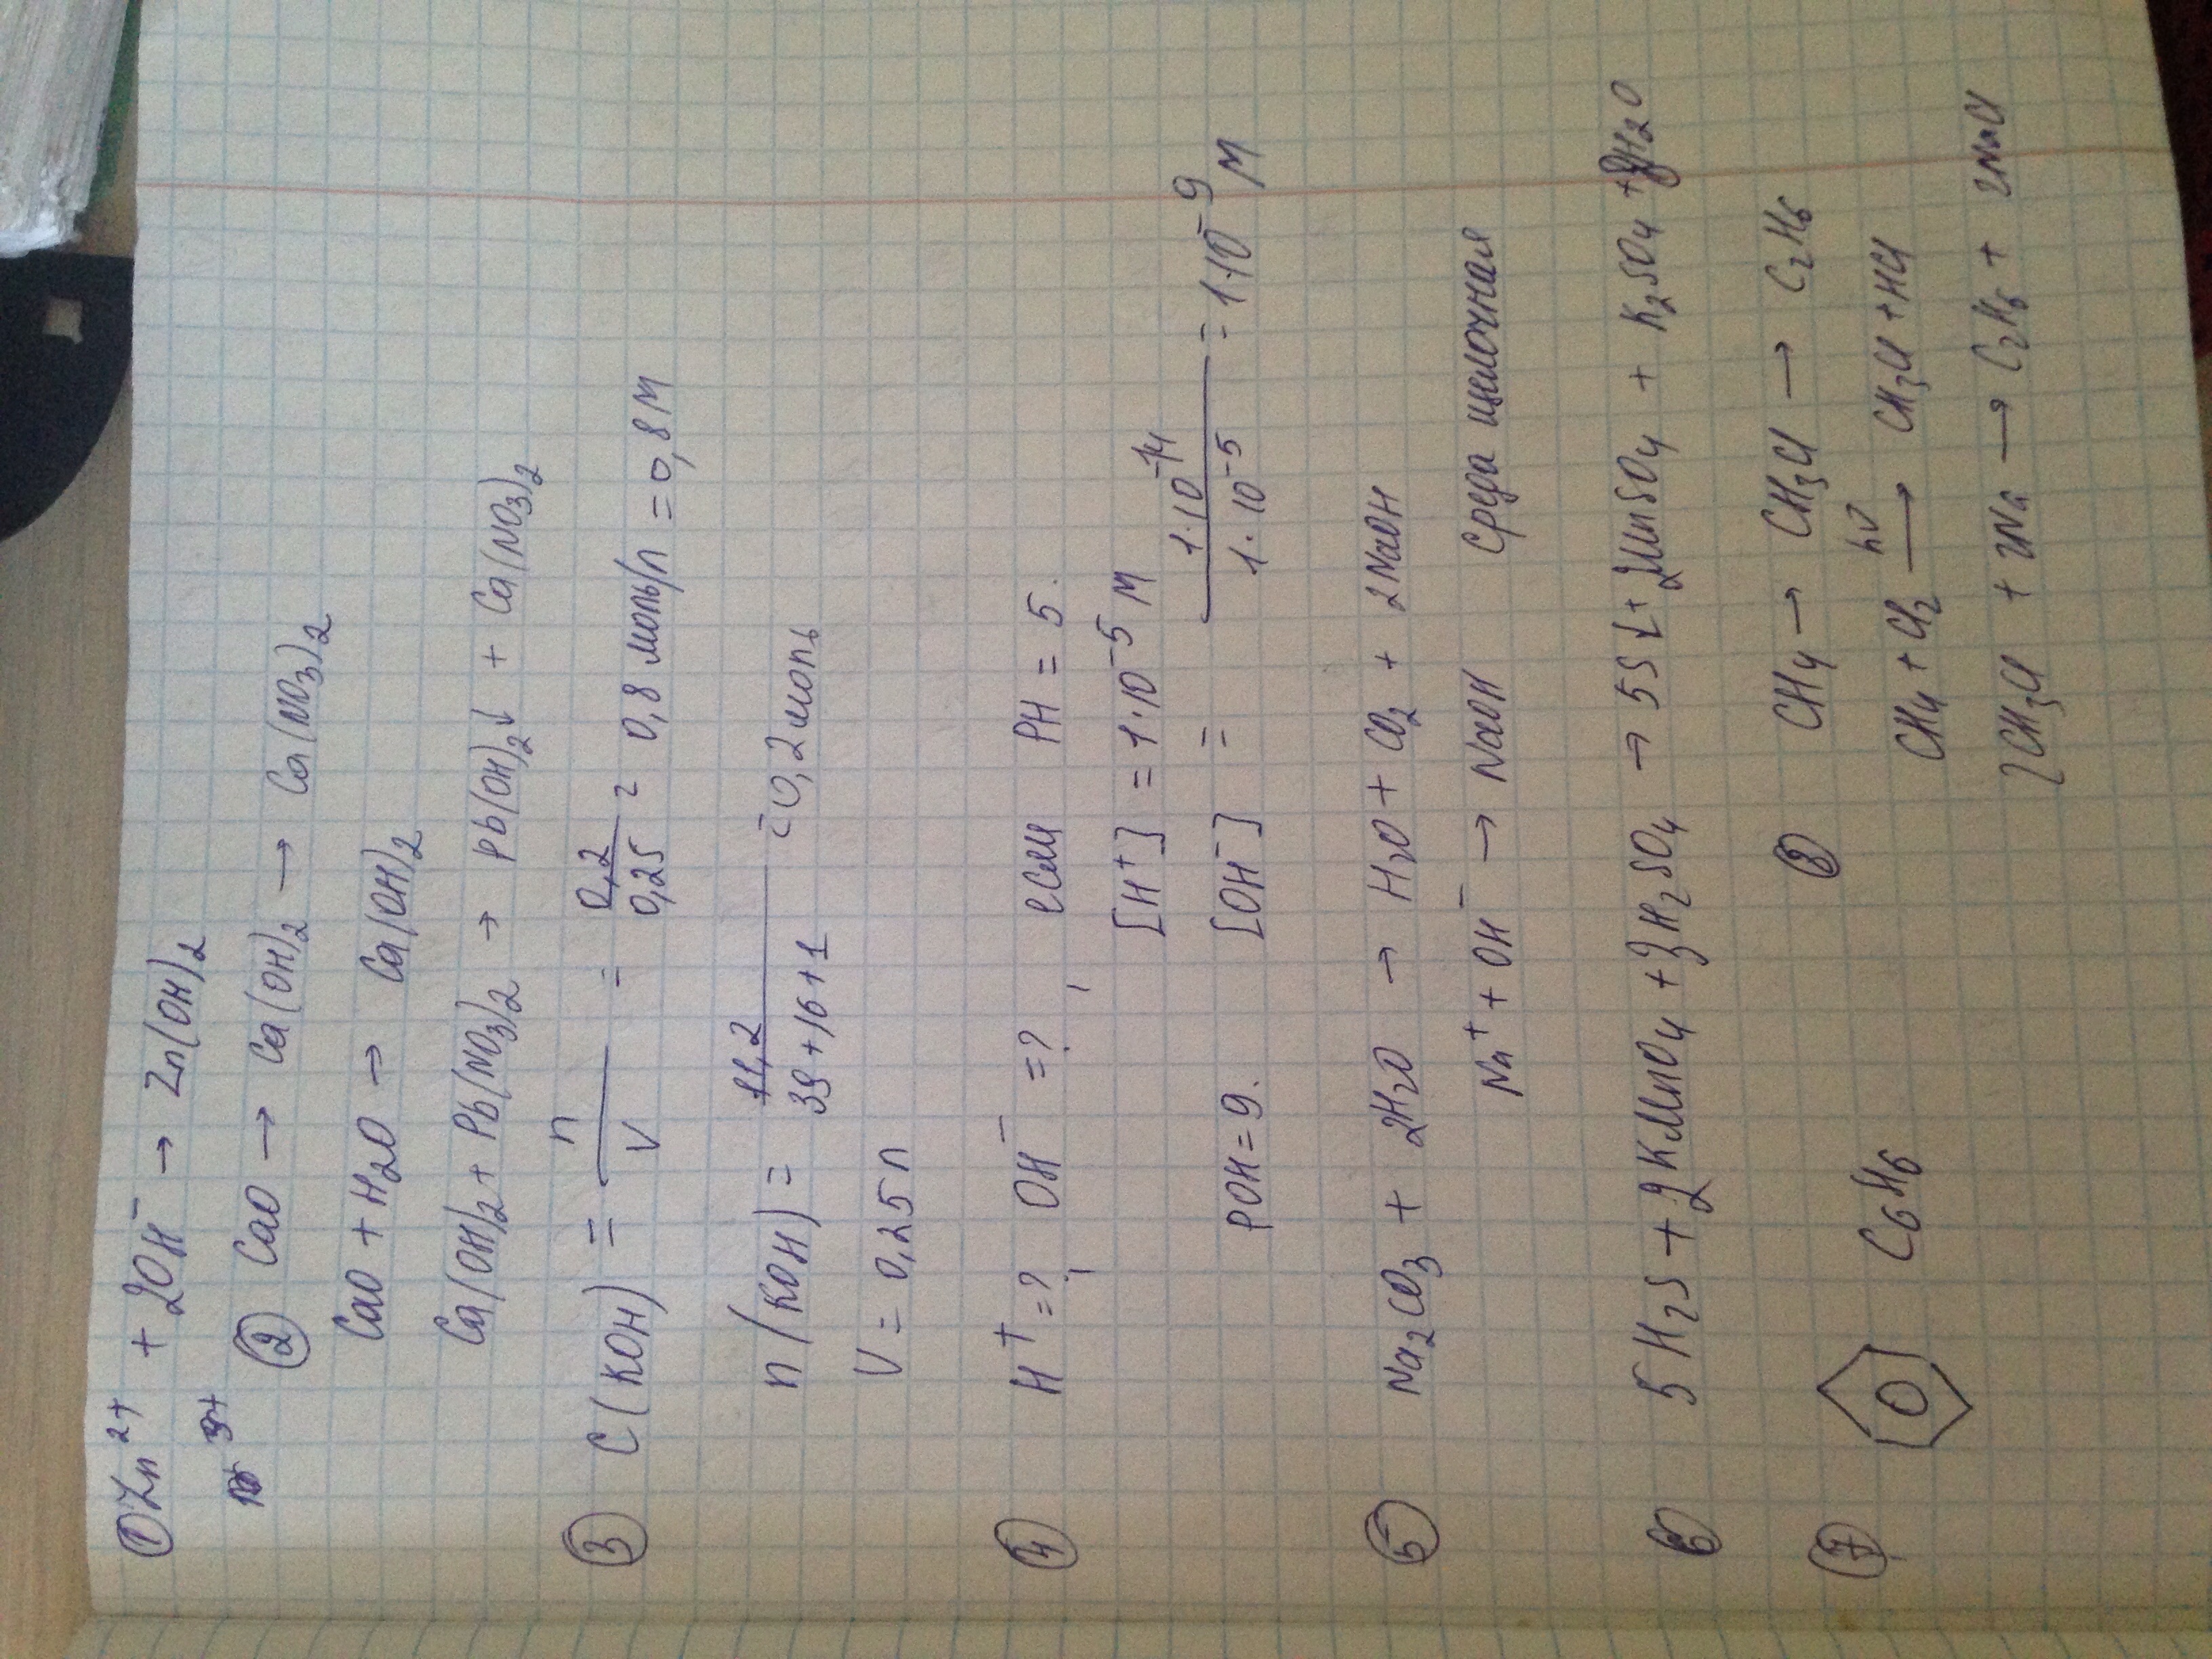 ① Zn²⁺ + 2OH⁻ → Zn(OH)₂
3+
② CaO → Ca(OH)₂ → Ca(NO₃)₂
CaO + H₂O → Ca(OH)₂
Ca(OH)₂ + Pb(NO₃)₂ → Pb(OH)₂↓ + Ca(NO₃)₂
③ C(KOH) = n/V = 0,2/0,25 = 0,8 моль/л = 0,8 М
n(KOH) = 11,2/39+16+1 = 0,2 моль
V = 0,25 л
④ H⁺ = ?, OH⁻ = ?, если PH = 5.
[H⁺] = 1·10⁻⁵ М
POH = 9. [OH⁻] = 1·10⁻¹⁴/1·10⁻⁵ = 1·10⁻⁹ М
⑤ Na₂CO₃ + 2H₂O → H₂O + CO₂ + 2NaOH
Na⁺ + OH⁻ → NaOH Среда щелочная
⑥ 5H₂S + 2KMnO₄ + 3H₂SO₄ → 5S↓ + 2MnSO₄ + K₂SO₄ + 8H₂O
⑦ C₆H₆
⑧ CH₄ → CH₃Cl → C₂H₆
CH₄ + Cl₂ hν→ CH₃Cl + HCl
2CH₃Cl + 2Na → C₂H₆ + 2NaCl